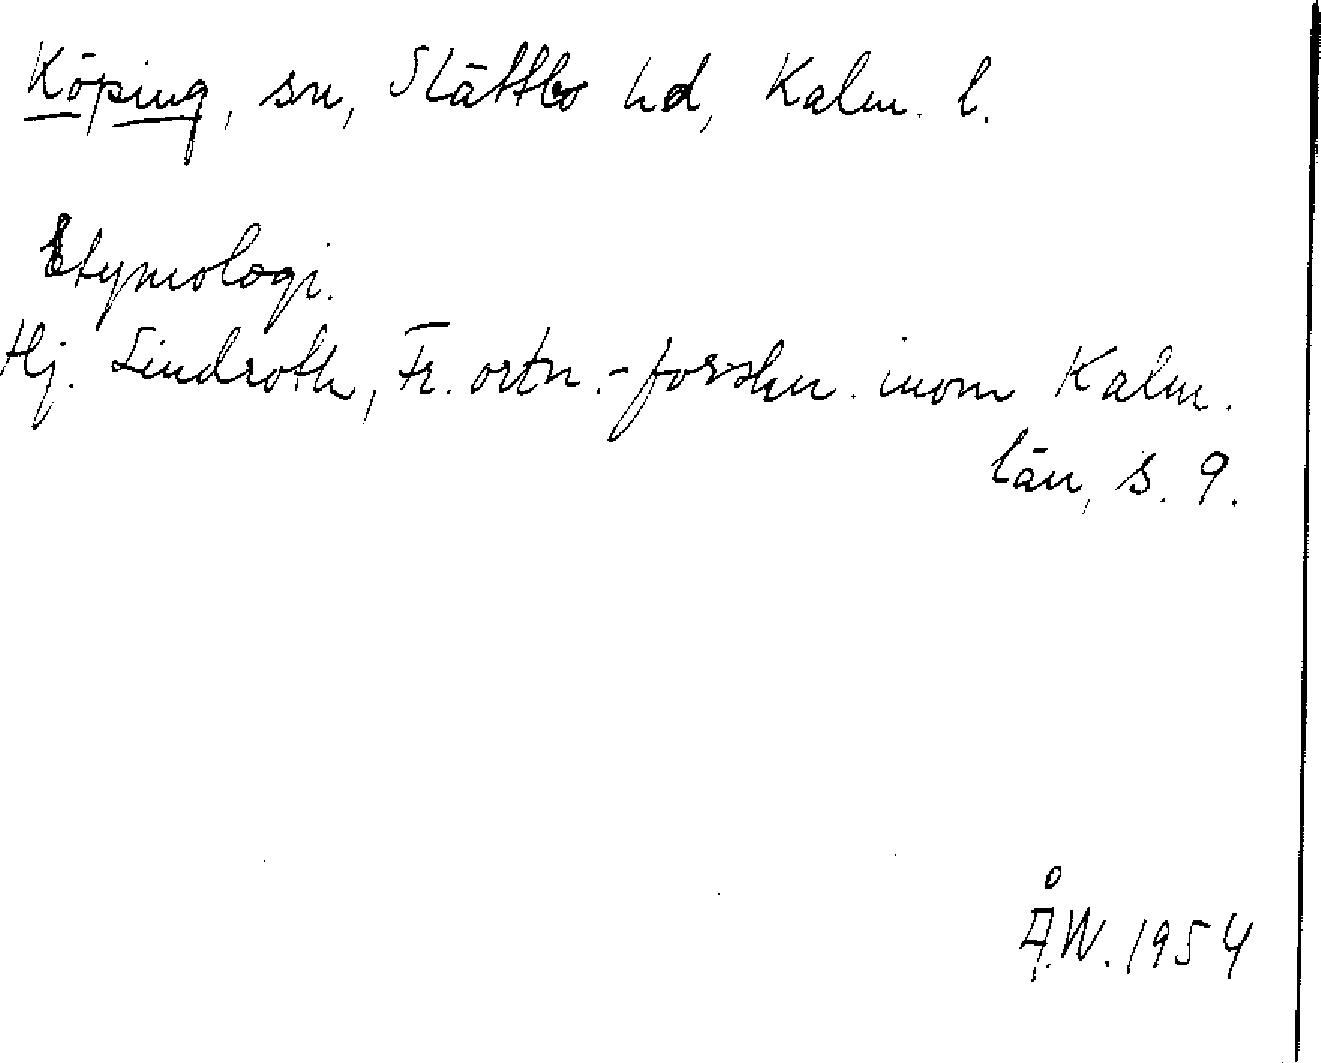 Köping, sn, Slättbo hd, Kalm. l.
Etymologi.
Hj. Lindroth, Fr. ortn.-forskn. inom Kalm.
län, s. 9.
Å.W. 1954